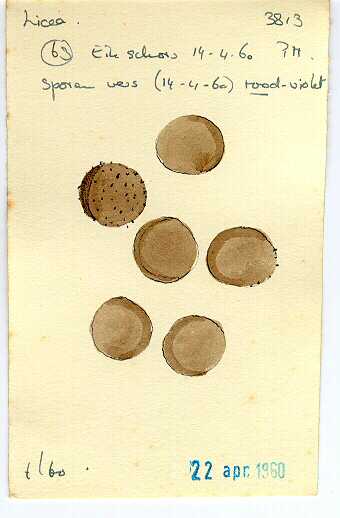 Licea. 3813
(63) Eik schors 14-4-60 PM.
Sporen vers (14-4-60) rood-violet
t/60.
22 apr. 1960